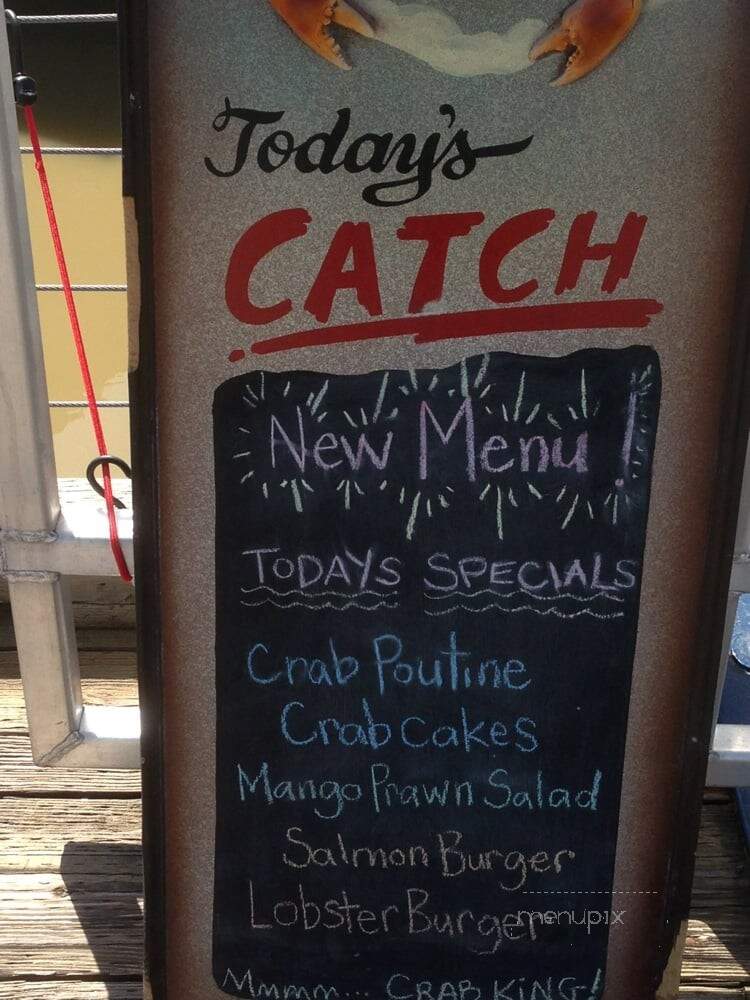 Today's
CATCH
New Menu!
TODAYS SPECIALS
Crab Poutine
Crab cakes
Mango Prawn Salad
Salmon Burger
Lobster Burger
menupix
Mmmm... CRAB KING!